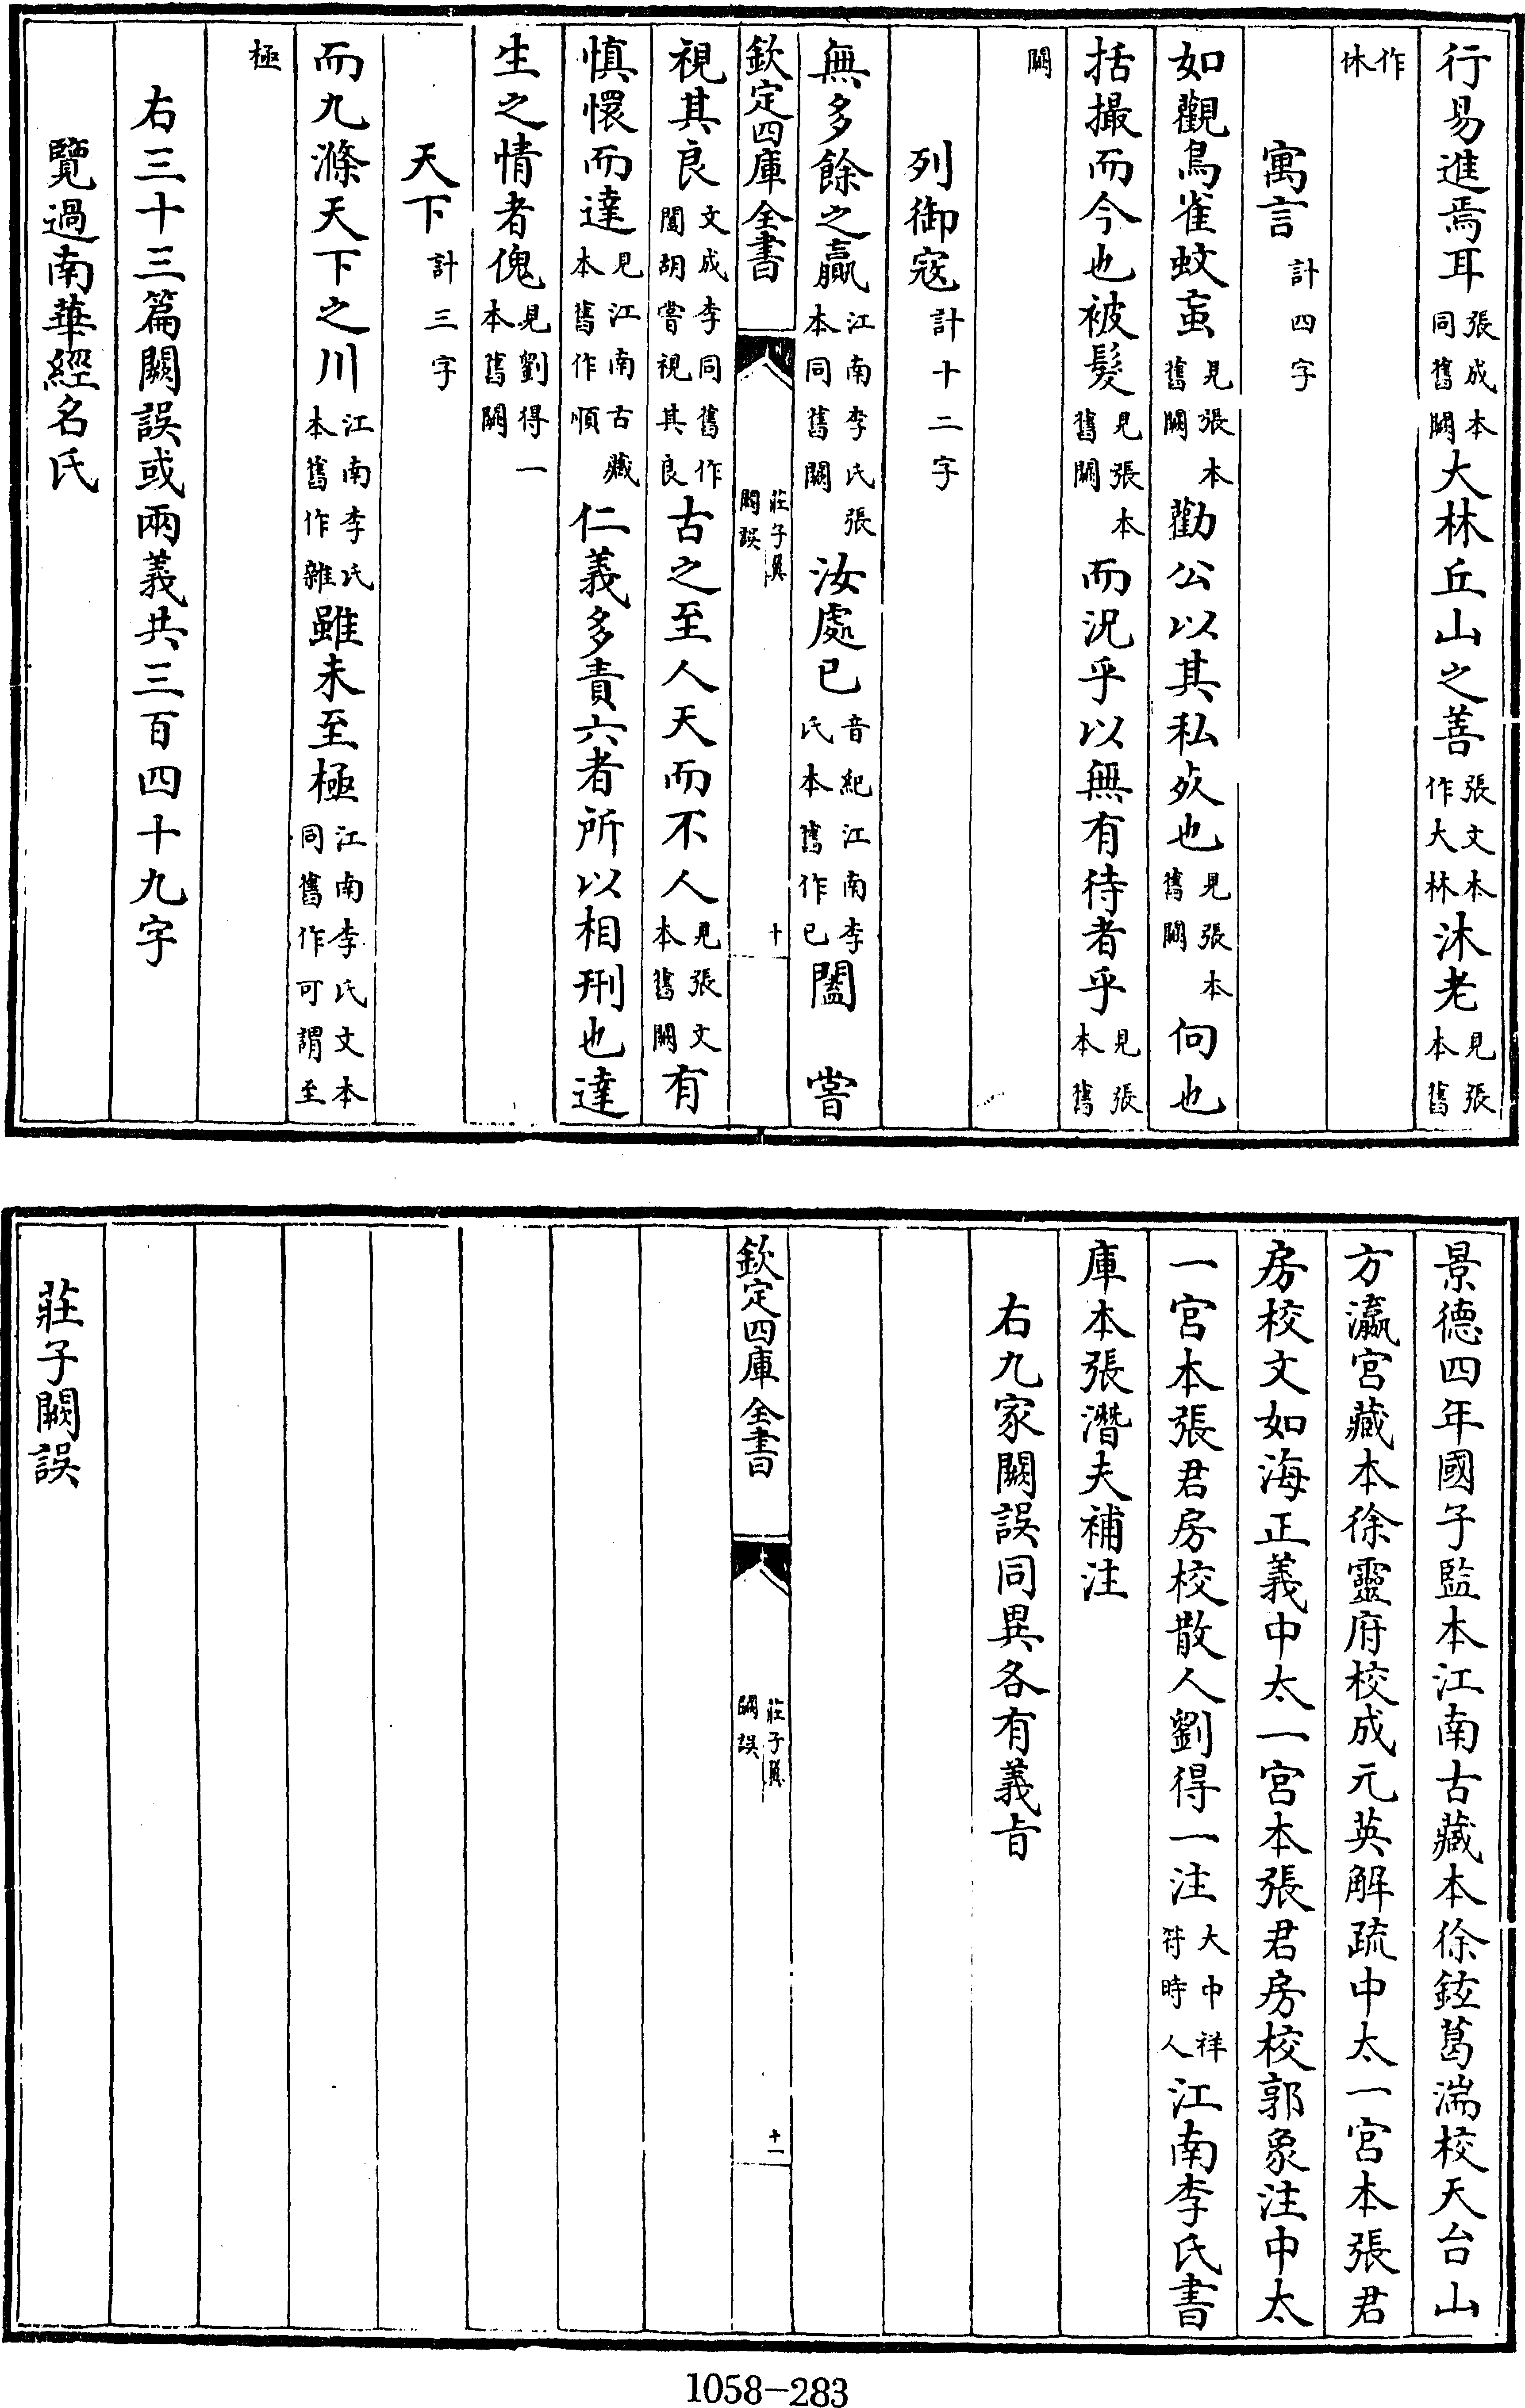 行易進焉耳張成本同舊闕大林丘山之善張文本作大林沐老見張本舊
作休
寓言計四字
如觀鳥雀蚊䖟見張本舊闕勸公以其私㱙也見張本舊闕向也
括撮而今也被髮見張本舊闕而況乎以無有待者乎見張本舊
闕
列御寇計十二字
無多餘之贏江南李氏張本同舊闕汝處已音紀江南李氏本舊作已闔嘗
欽定四庫全書 莊子翼闕誤 十
視其良文成李同舊作闔胡嘗視其良古之至人天而不人見張文本舊闕有
慎懁而達見江南古藏本舊作順仁義多責六者所以相刑也達
生之情者傀見劉得一本舊闕
天下計三字
而九滌天下之川江南李氏本舊作雜雖未至極江南李氏文本同舊作可謂至
極
右三十三篇闕誤或兩義共三百四十九字
覽過南華經名氏
景德四年國子監本江南古藏本徐鉉葛湍校天台山
方瀛宮藏本徐靈府校成元英解疏中太一宮本張君
房校文如海正義中太一宮本張君房校郭象注中太
一宮本張君房校散人劉得一注大中祥符時人江南李氏書
庫本張潛夫補注
右九家闕誤同異各有義旨
欽定四庫全書 莊子翼闕誤 十一
莊子闕誤
1058-283